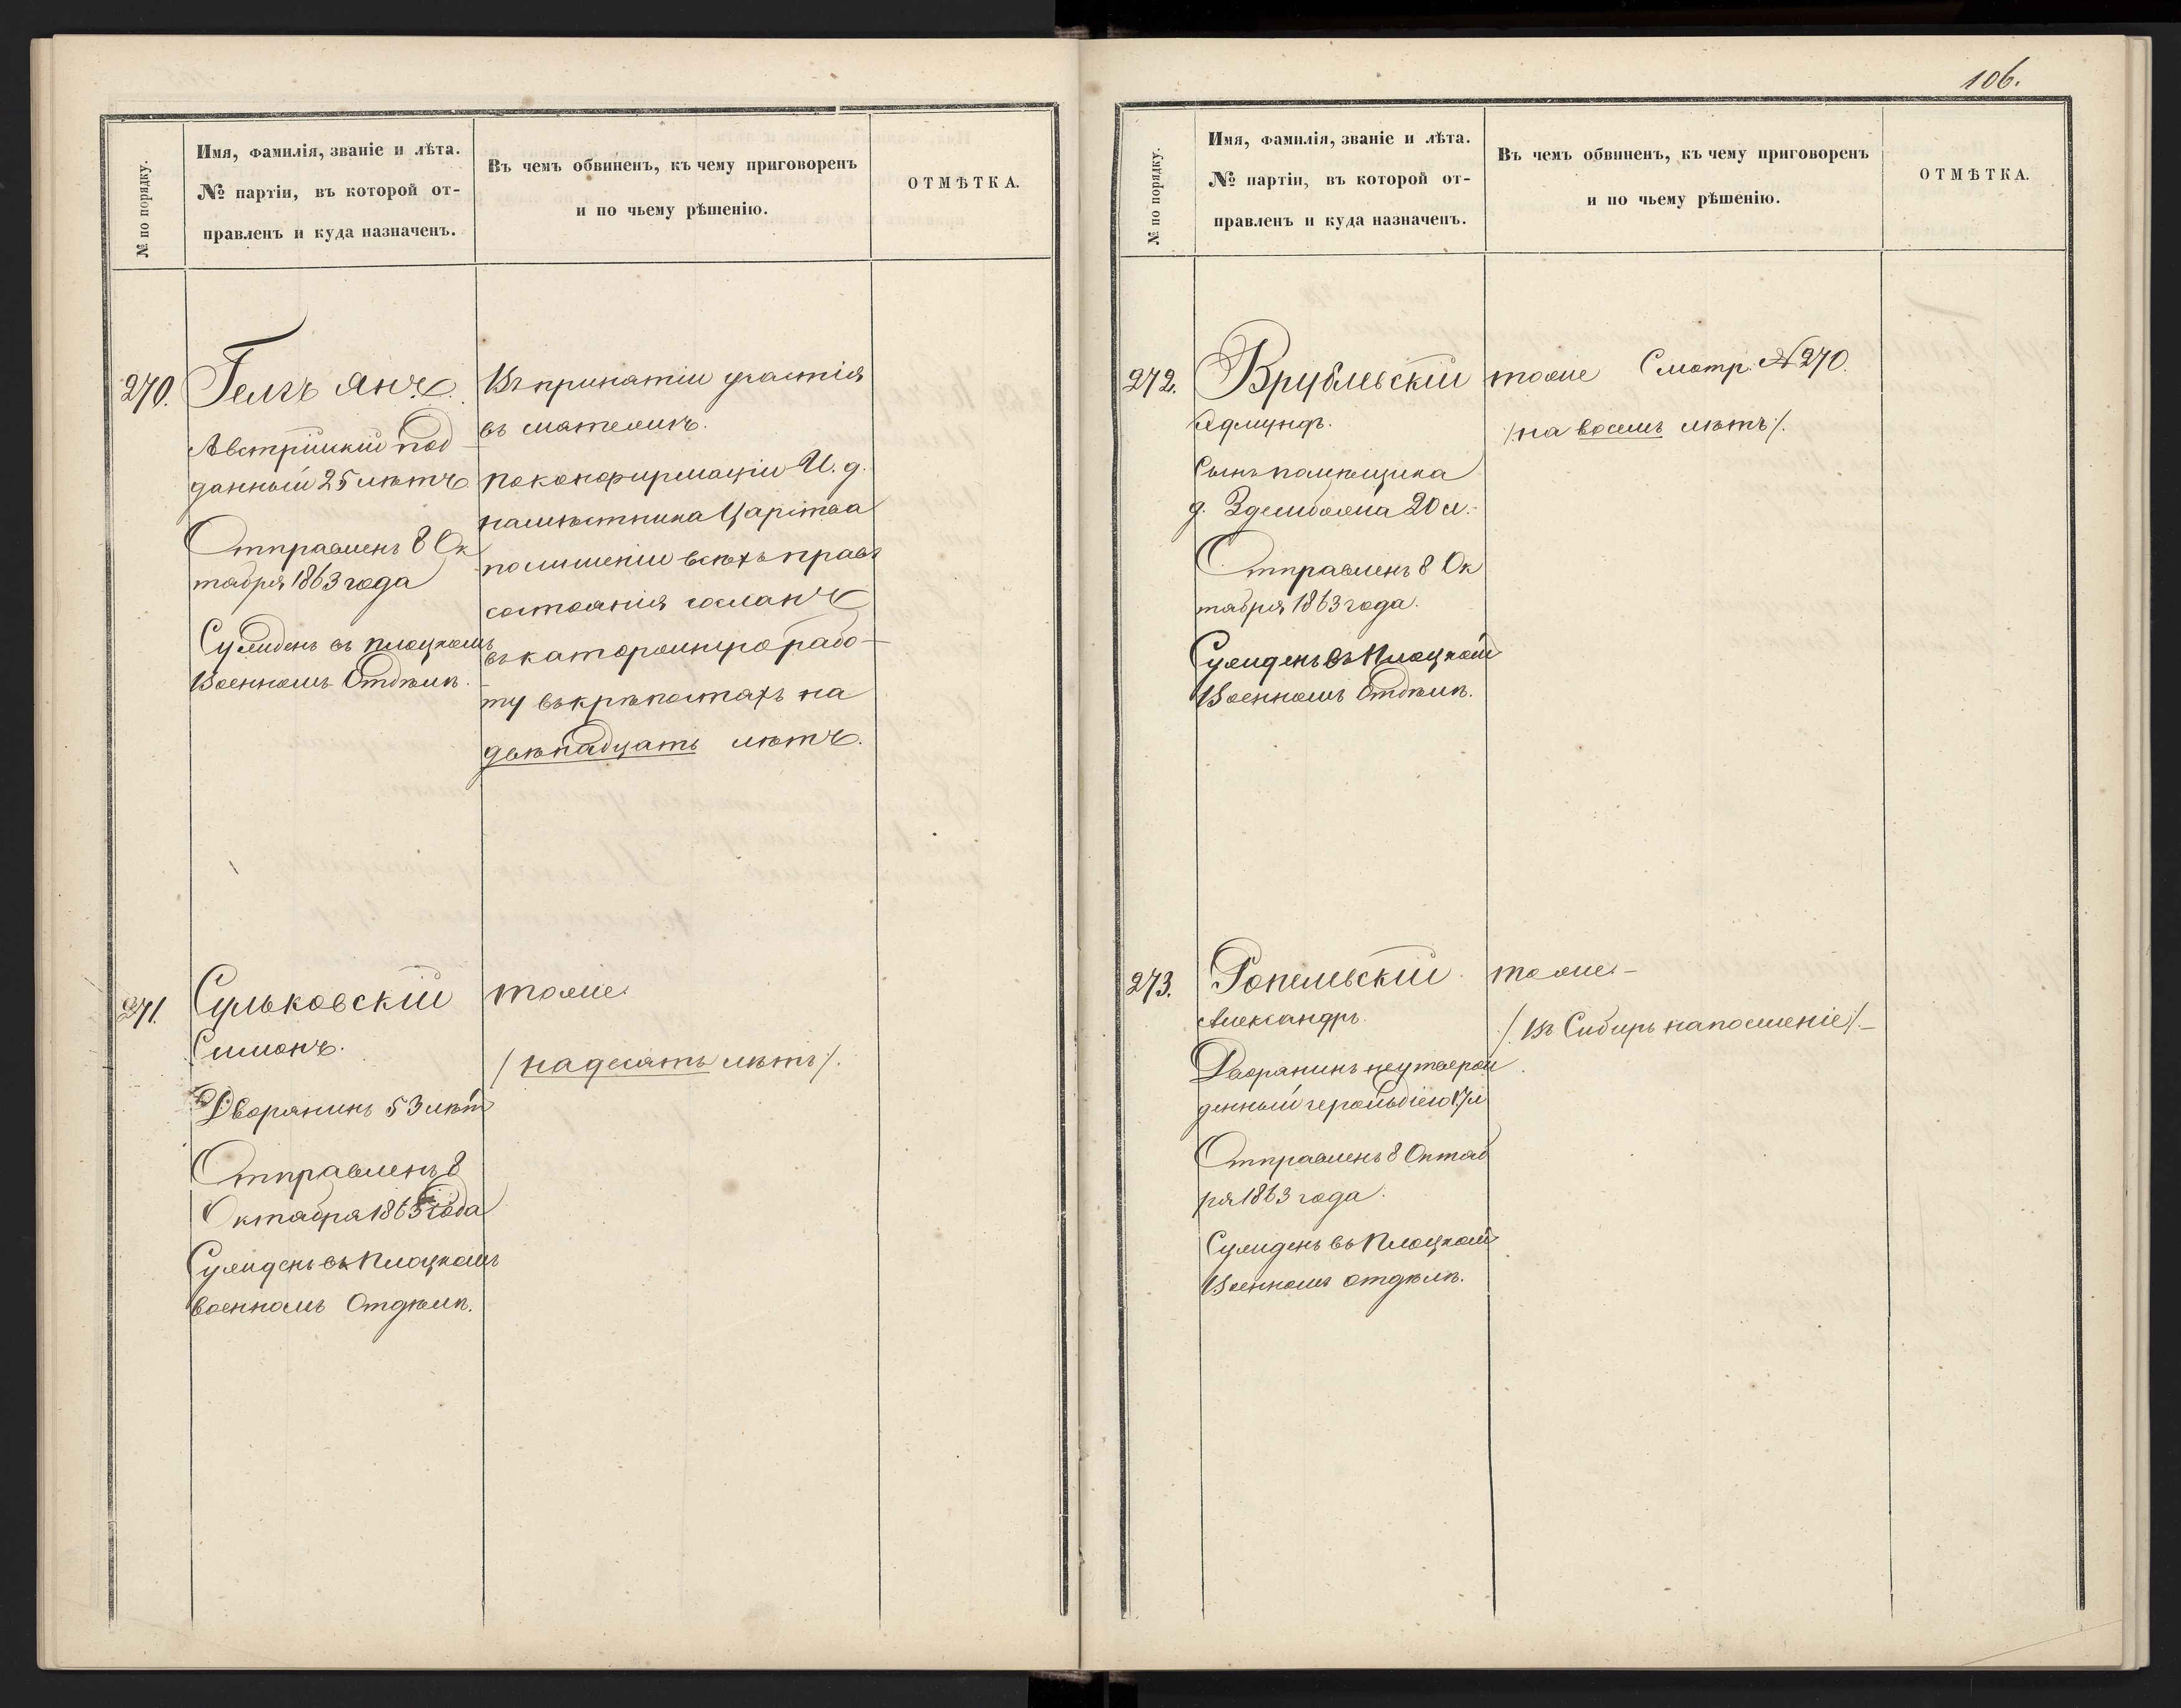 № по порядку.
Имя, фамилія, званіе и лѣта.
№ партіи, въ которой от-
правленъ и куда назначенъ.
Въ чемъ обвиненъ, къ чему приговоренъ
и по чьему рѣшенію.
ОТМѢТКА.
270.
Гелгъ Янъ.
Австрійскій под
данный 25 лѣтъ
Отправленъ 8 Ок
тября 1863 года
Сужденъ въ Плоцкомъ
Военномъ Отдѣлѣ.
Въ принятіи участія
въ мятежѣ.
по конфирмаціи И. д.
намѣстника Царства
по лишеніи всѣхъ правъ
состоянія сосланъ
въ каторжную рабо-
ту въ крѣпостяхъ на
двѣнадцать лѣтъ.
271.
Сульковскій
Симонъ.
Дворянинъ 53 лѣт
Отправленъ 8
Октября 1863 года
Сужденъ въ Плоцкомъ
военномъ Отдѣлѣ.
тоже
/на десять лѣтъ/.
106.
№ по порядку.
Имя, фамилія, званіе и лѣта.
№ партіи, въ которой от-
правленъ и куда назначенъ.
Въ чемъ обвиненъ, къ чему приговоренъ
и по чьему рѣшенію.
ОТМѢТКА.
272.
Врублевскій
Эдмундъ.
Сынъ помѣщика
д. 20 л.
Отправленъ 8 Ок
тября 1863 года.
Сужденъ въ Плоцком
Военномъ Отдѣлѣ.
тоже Смотр. № 270.
/на восемь лѣтъ/.
273.
Ропельскій
Александръ.
Дворянинъ неутверж
денный герольдіею 17 л
Отправленъ 8 Октяб
ря 1863 года.
Сужденъ въ Плоцком
Военномъ отдѣлѣ.
тоже –
/Въ Сибирь на поселеніе/.–